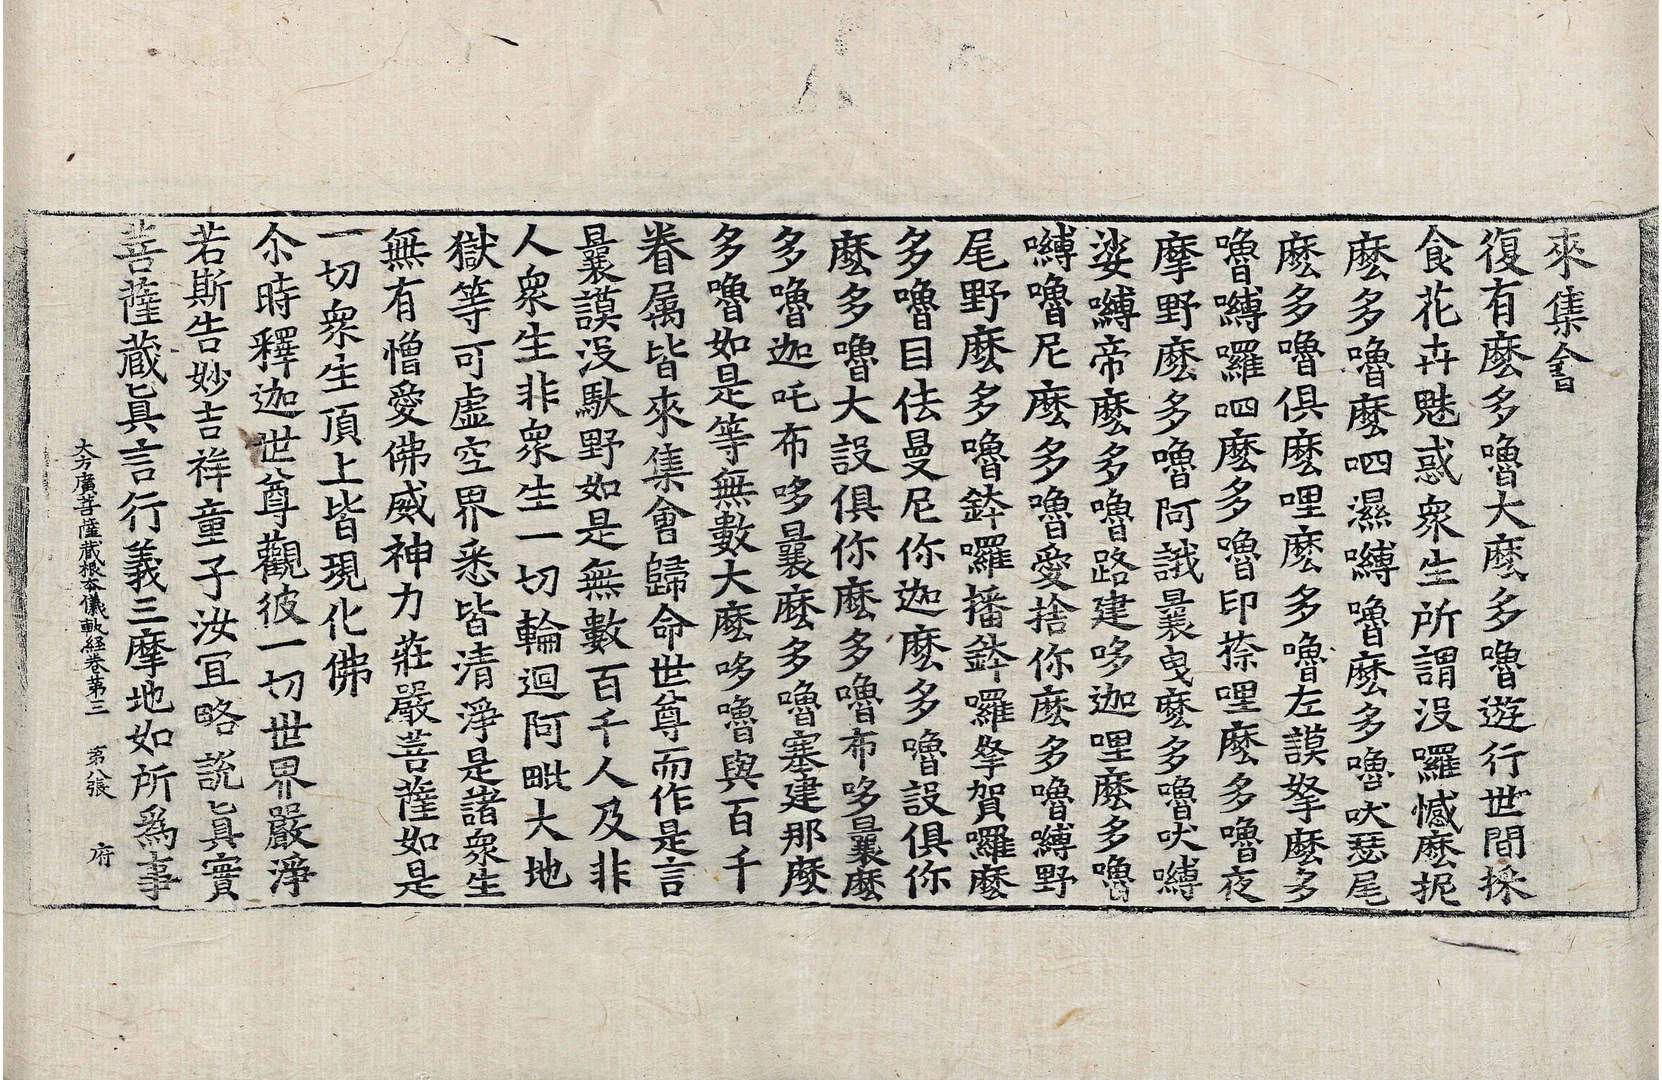 來集會
復有麽多嚕大麽多嚕遊行世間採
食花卉魅惑衆生所謂没囉憾麽抳
麽多嚕麽呬濕嚩嚕麽多嚕吠瑟尾
麽多嚕俱麽哩麽多嚕左謨拏麽多
嚕嚩囉呬麽多嚕印捺哩麽多嚕夜
摩野麽多嚕阿誐曩曳麽多嚕吠嚩
娑嚩帝麽多嚕路建哆迦哩麽多嚕
嚩嚕尼麽多嚕愛捨你麽多嚕嚩野
尾野麽多嚕鉢囉播鉢囉拏賀囉麽
多嚕目佉曼尼你迦麽多嚕設俱你
麽多嚕大設俱你麽多嚕布哆曩麽
多嚕迦吒布哆曩麽多嚕塞建那麽
多嚕如是等無數大麽哆嚕與百千
眷属皆來集會歸命世尊而作是言
曩謨没馱野如是無數百千人及非
人衆生非衆生一切輪迴阿毗大地
獄等可虛空界悉皆清淨是諸衆生
無有憎愛佛威神力莊嚴菩薩如是
一切衆生頂上皆現化佛
尒時釋迦世尊觀彼一切世界嚴淨
若斯告妙吉祥童子汝冝略說眞實
菩薩蔵眞言行義三摩地如所爲事
大方廣菩薩蔵根本儀軌経卷第三 第八張 府